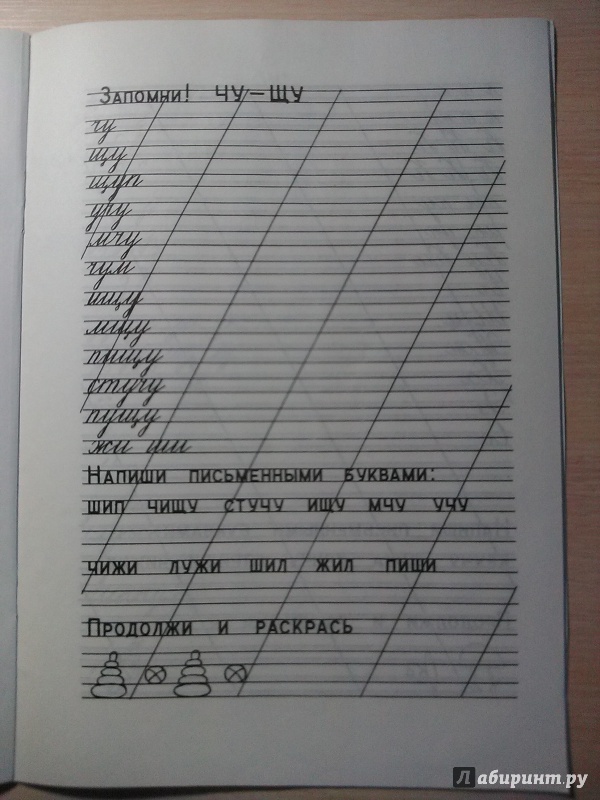 Запомни! ЧУ – ЩУ
чу
щу
щуп
уру
мчу
чум
ищу
мщу
прищу
стучу
пущу
жи ши
Напиши письменными буквами:
шип чищу стучу ищу мчу учу
чижи лужи шил жил пиши
Продолжи и раскрась
Лабиринт.ру